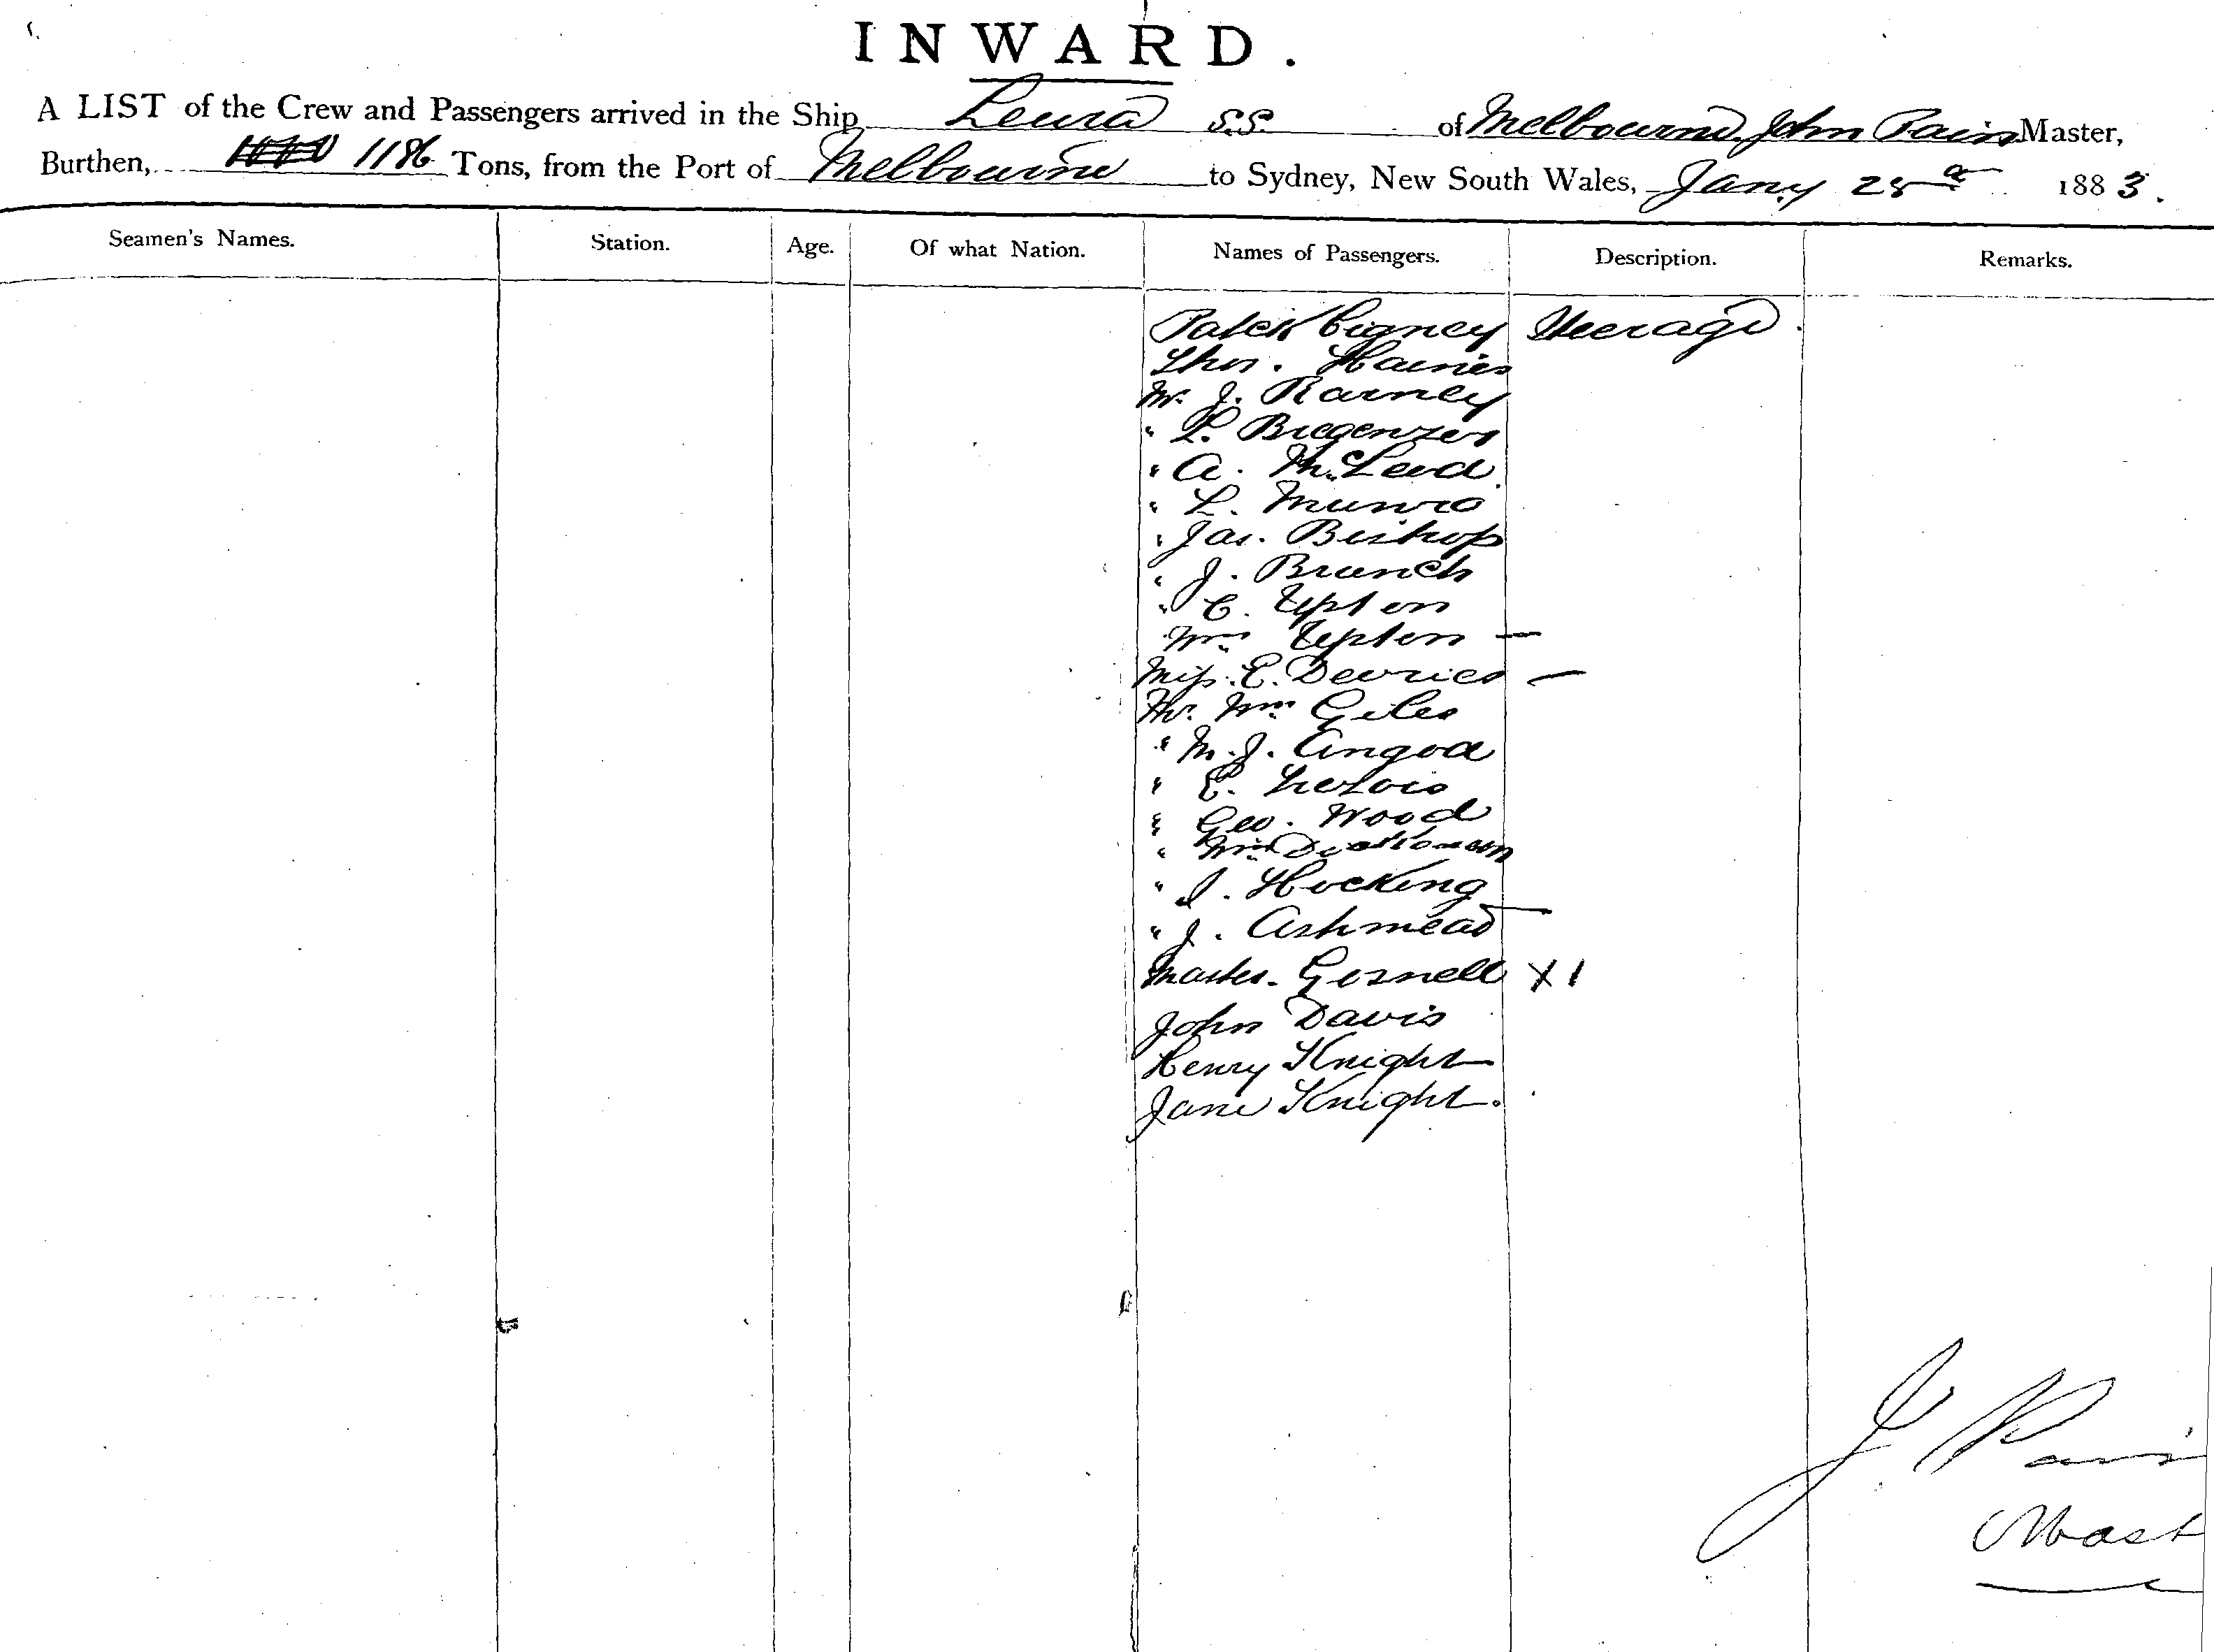 INWARD.
A LIST of the Crew and Passengers arrived in the Ship Leura S.S. of Melbourne, John Pain Master,
Burthen, 1186 Tons, from the Port of Melbourne to Sydney, New South Wales, Jany 1883.
Seamen's Names. Station. Age. Of what Nation. Names of Passengers. Description. Remarks.
Patck Cigney Steerage
Thos. Haines
Mr. J. Rarney
" L. Bregenzer
" A. McLeod
" L. Munro
" Jas. Bishop
" J. Branch
" C. Upton
Mrs Upton —
Miss E. Devries —
Mr. Wm Giles
" M. J. Angoa
" E.
" Geo. Wood
" Wm Dickenson
" J. Hocking
" J. Ashmead
Master. Gosnell X 1
John Davis
Henry Knight
Jane Knight.
J. Pain
Mast